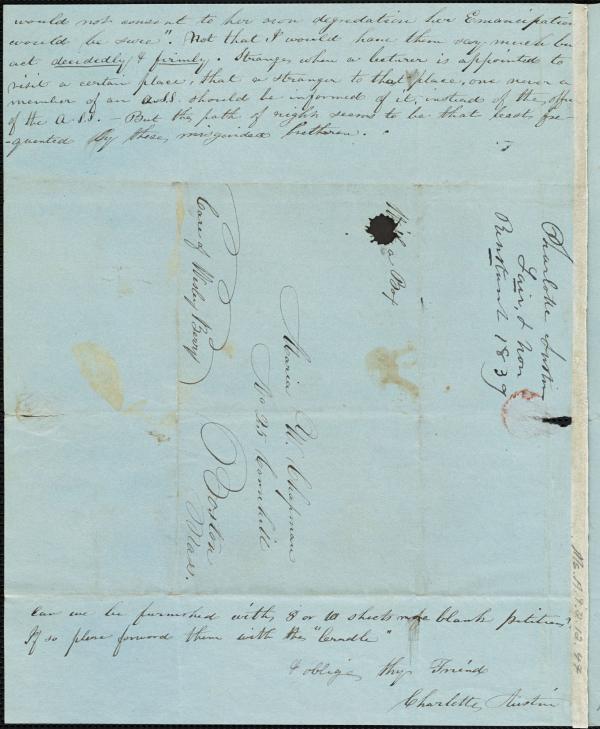 would not consent to her own degradation her Emancipation
would be sure". Not that I would have them say much but
act decidedly & firmly. Strange, when a lecturer is appointed to
visit a certain place, that a stranger to that place, one never a
member of an A.S.S. should be informed of it, instead of the
of the A.S.S. - But the path of right seems to be that least fre-
-quented by these, misguided bretheren.
With a Box
Care of Wesley Berry
Maria W. Chapman
No 25 Cornhill
Boston
Mass.
Charlotte Austin
Fair, & Non
1839
Can we be furnished with, 8 or 10 sheets more blank petitions?
If so please forward them with the "Cradle"
& oblige thy Friend
Charlotte Austin